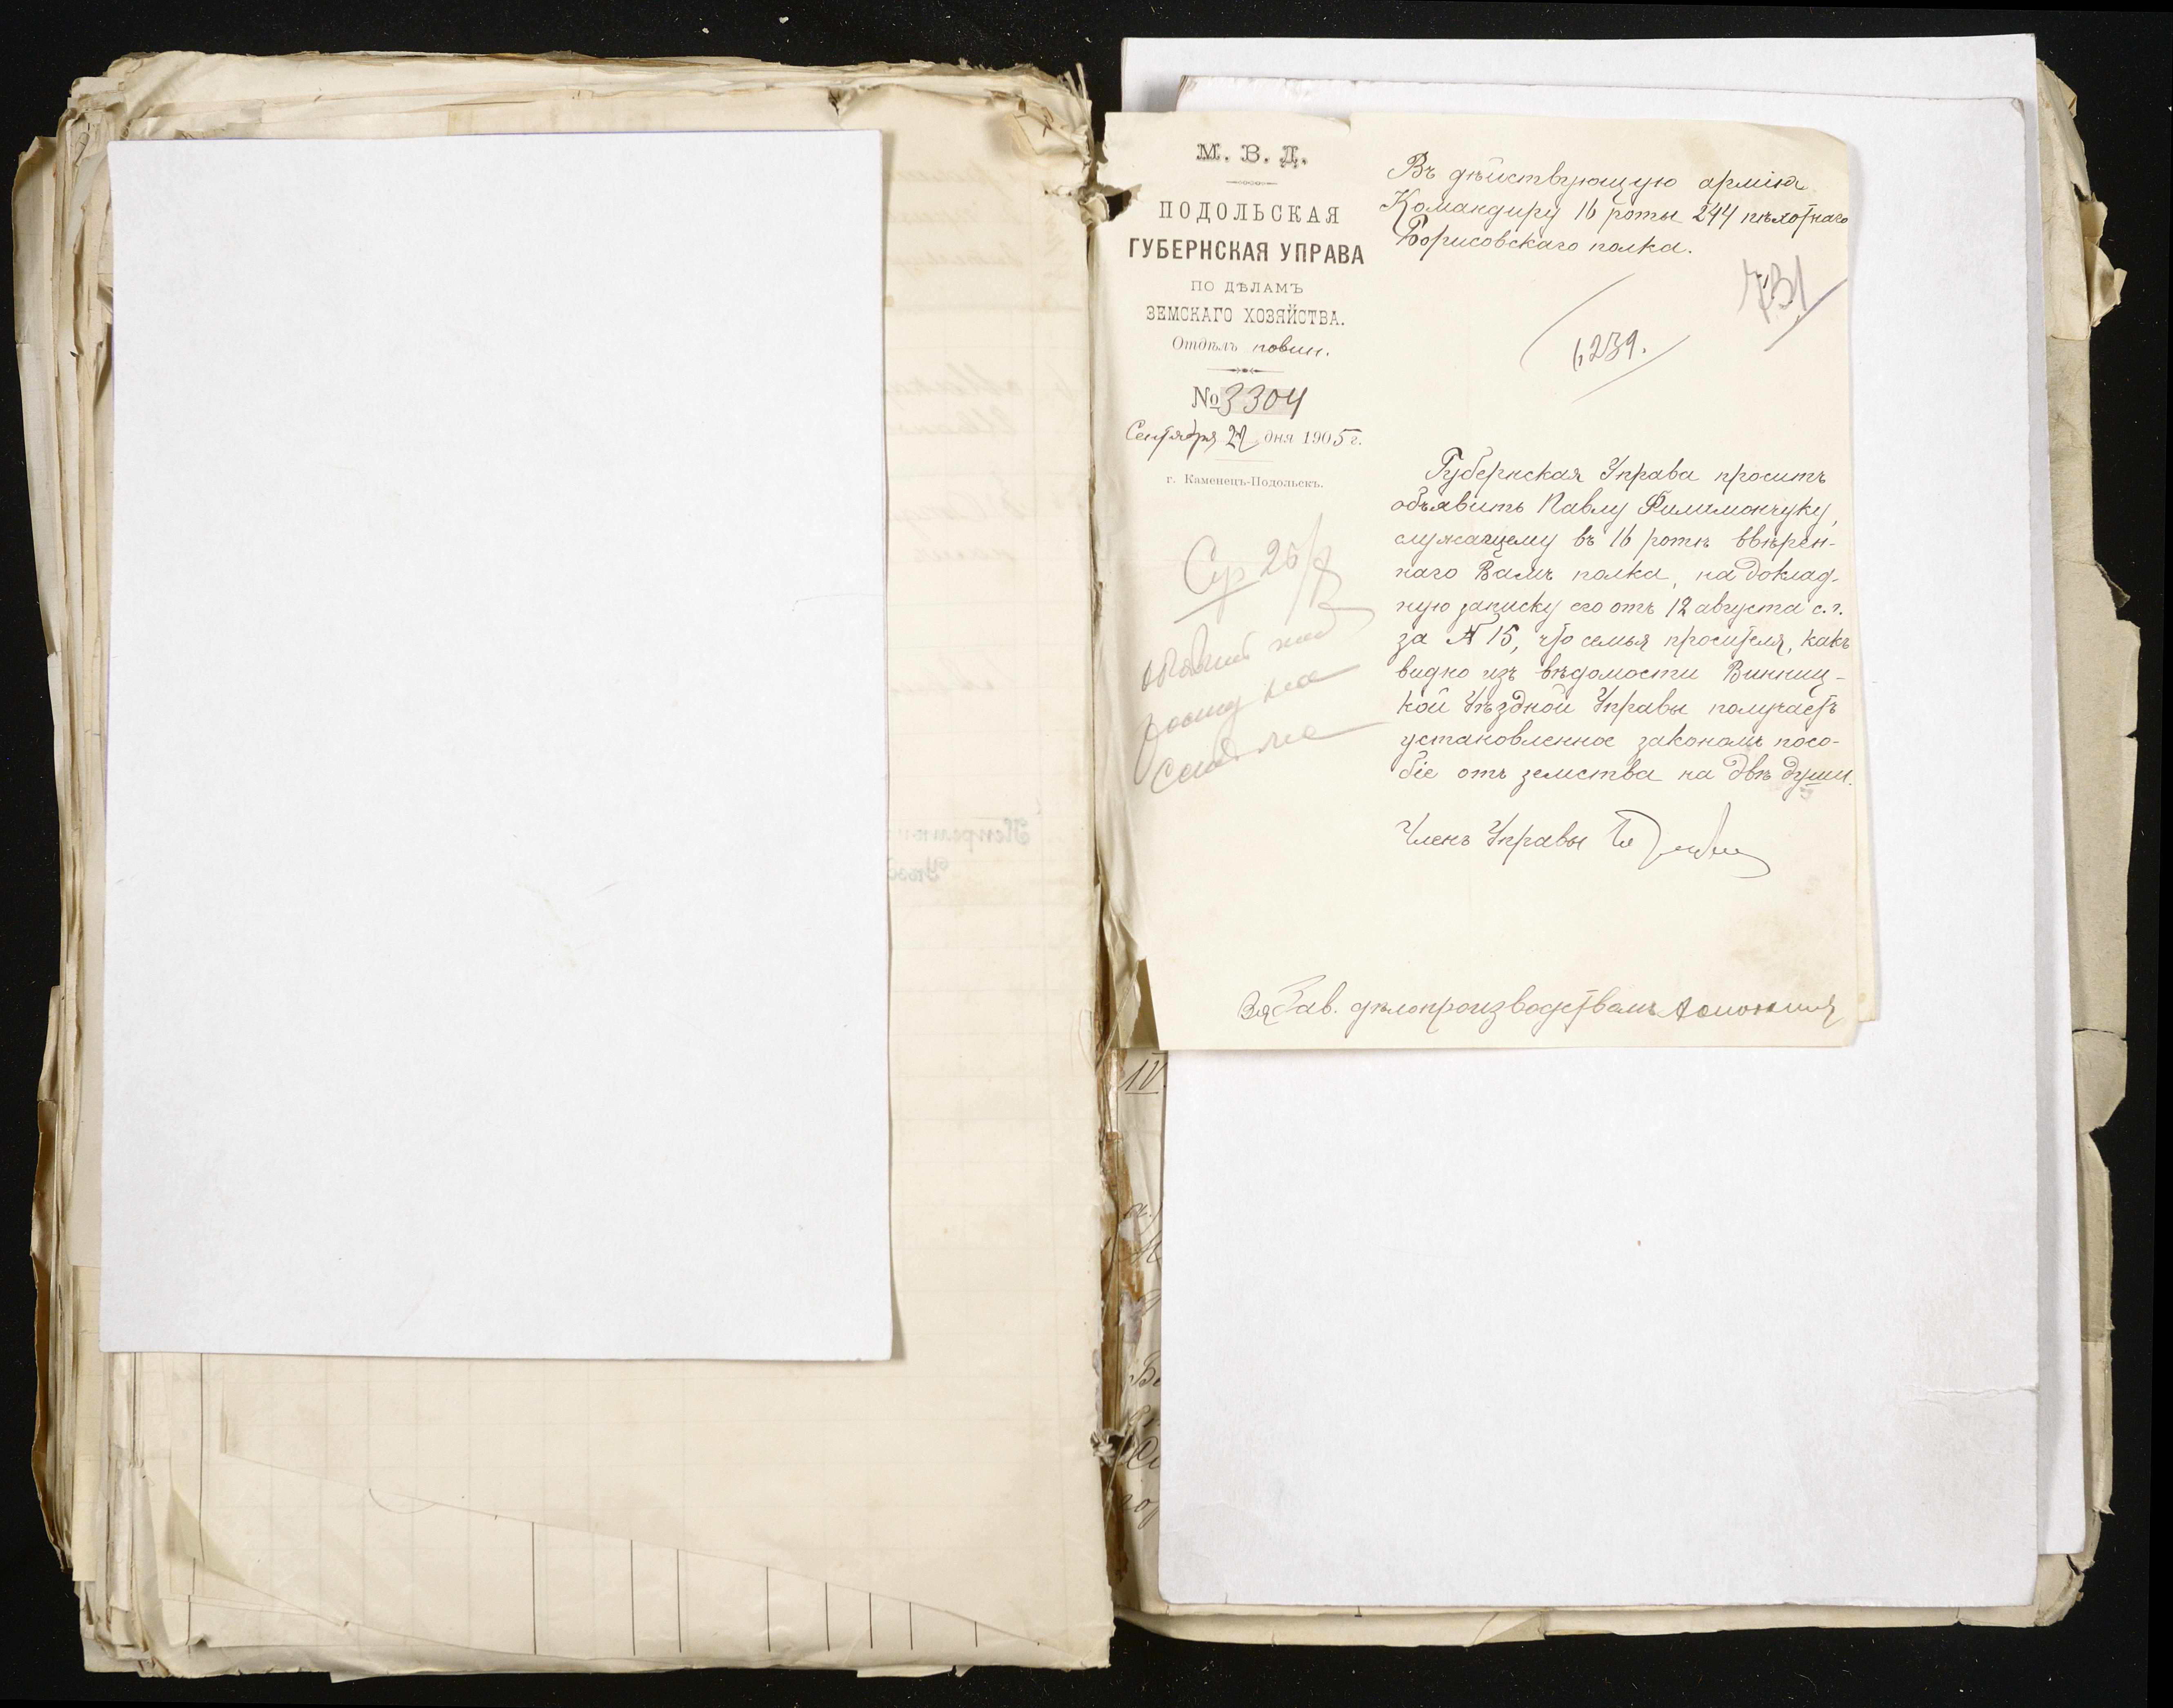 М. В. Д.
ПОДОЛЬСКАЯ
ГУБЕРНСКАЯ УПРАВА
ПО ДѢЛАМЪ
ЗЕМСКАГО ХОЗЯЙСТВА.
Отдѣлъ повин.
№ 3304
Сентября 22 дня 1905 г.
г. Каменецъ-Подольскъ.
Въ дѣйствующую армію
Командиру 16 роты 244 пѣхотнаго
Борисовскаго полка.
731
6239.
Губернская Управа проситъ
объявить Павлу Филимончуку,
служащему въ 16 ротѣ ввѣрен-
наго Вамъ полка, на доклад-
ную записку его отъ 12 августа с. г.
за № 15, что семья просителя, какъ
видно изъ вѣдомости Винниц-
кой Уѣздной Управы получаетъ
установленное закономъ посо-
біе отъ земства на двѣ души.
Членъ Управы
Зав. дѣлопроизводствомъ
IV.